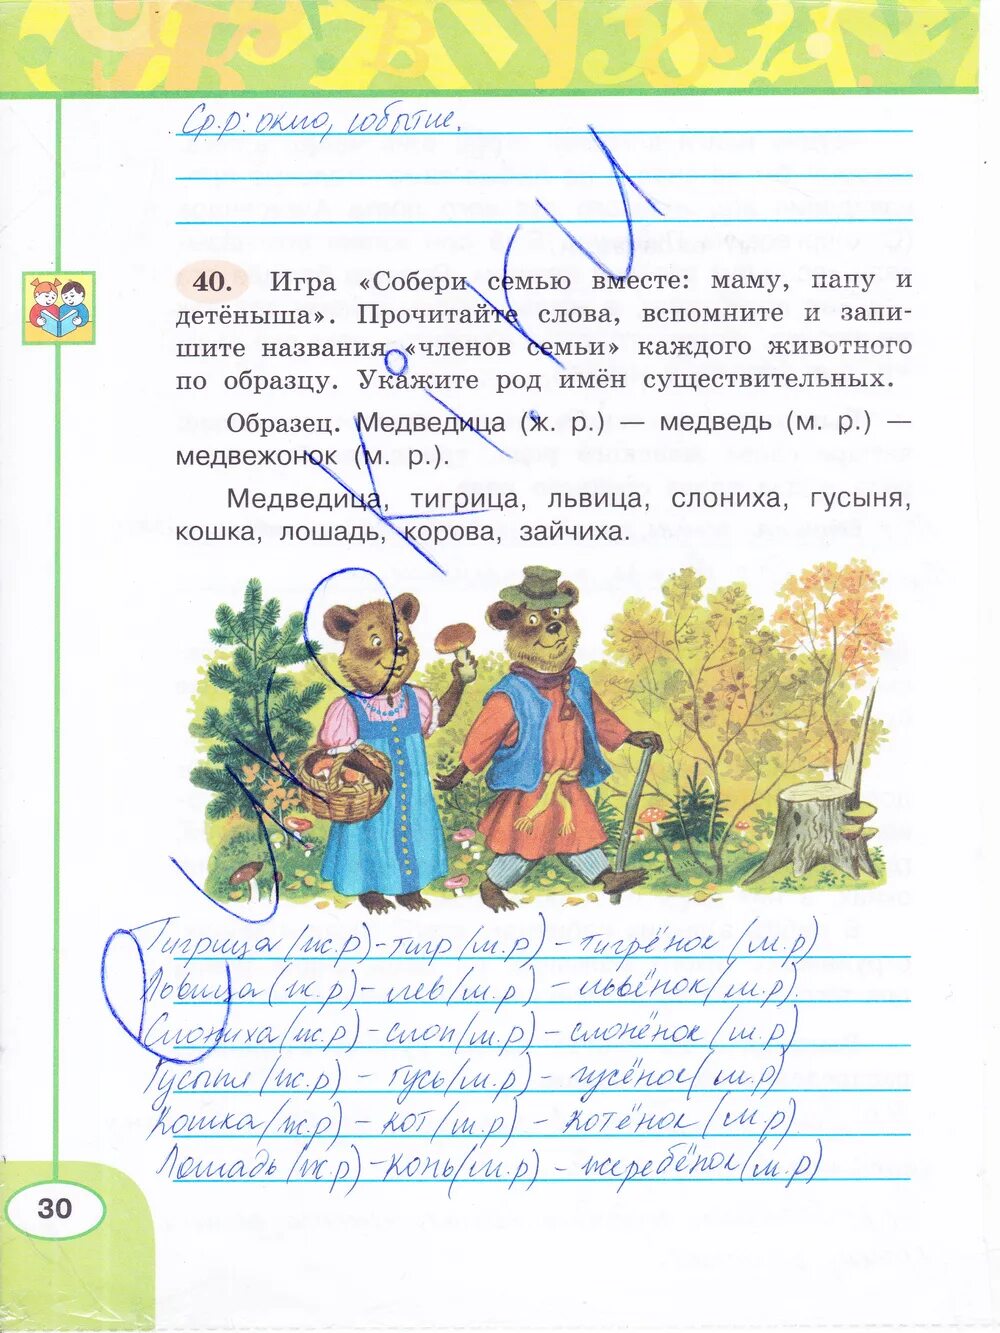 Ср.р: окно, событие.
40. Игра «Собери семью вместе: маму, папу и
детёныша». Прочитайте слова, вспомните и запи-
шите названия «членов семьи» каждого животного
по образцу. Укажите род имён существительных.
Образец. Медведица (ж. р.) — медведь (м. р.) —
медвежонок (м. р.).
Медведица, тигрица, львица, слониха, гусыня,
кошка, лошадь, корова, зайчиха.
Тигрица (ж.р) - тигр (м.р) - тигрёнок (м.р)
Львица (ж.р) - лев (м.р) - львёнок (м.р).
Слониха (ж.р) - слон (м.р) - слонёнок (м.р)
Гусыня (ж.р) - гусь (м.р) - гусёнок (м.р)
Кошка (ж.р) - кот (м.р) - котёнок (м.р)
Лошадь (ж.р) - конь (м.р) - жеребёнок (м.р)
30